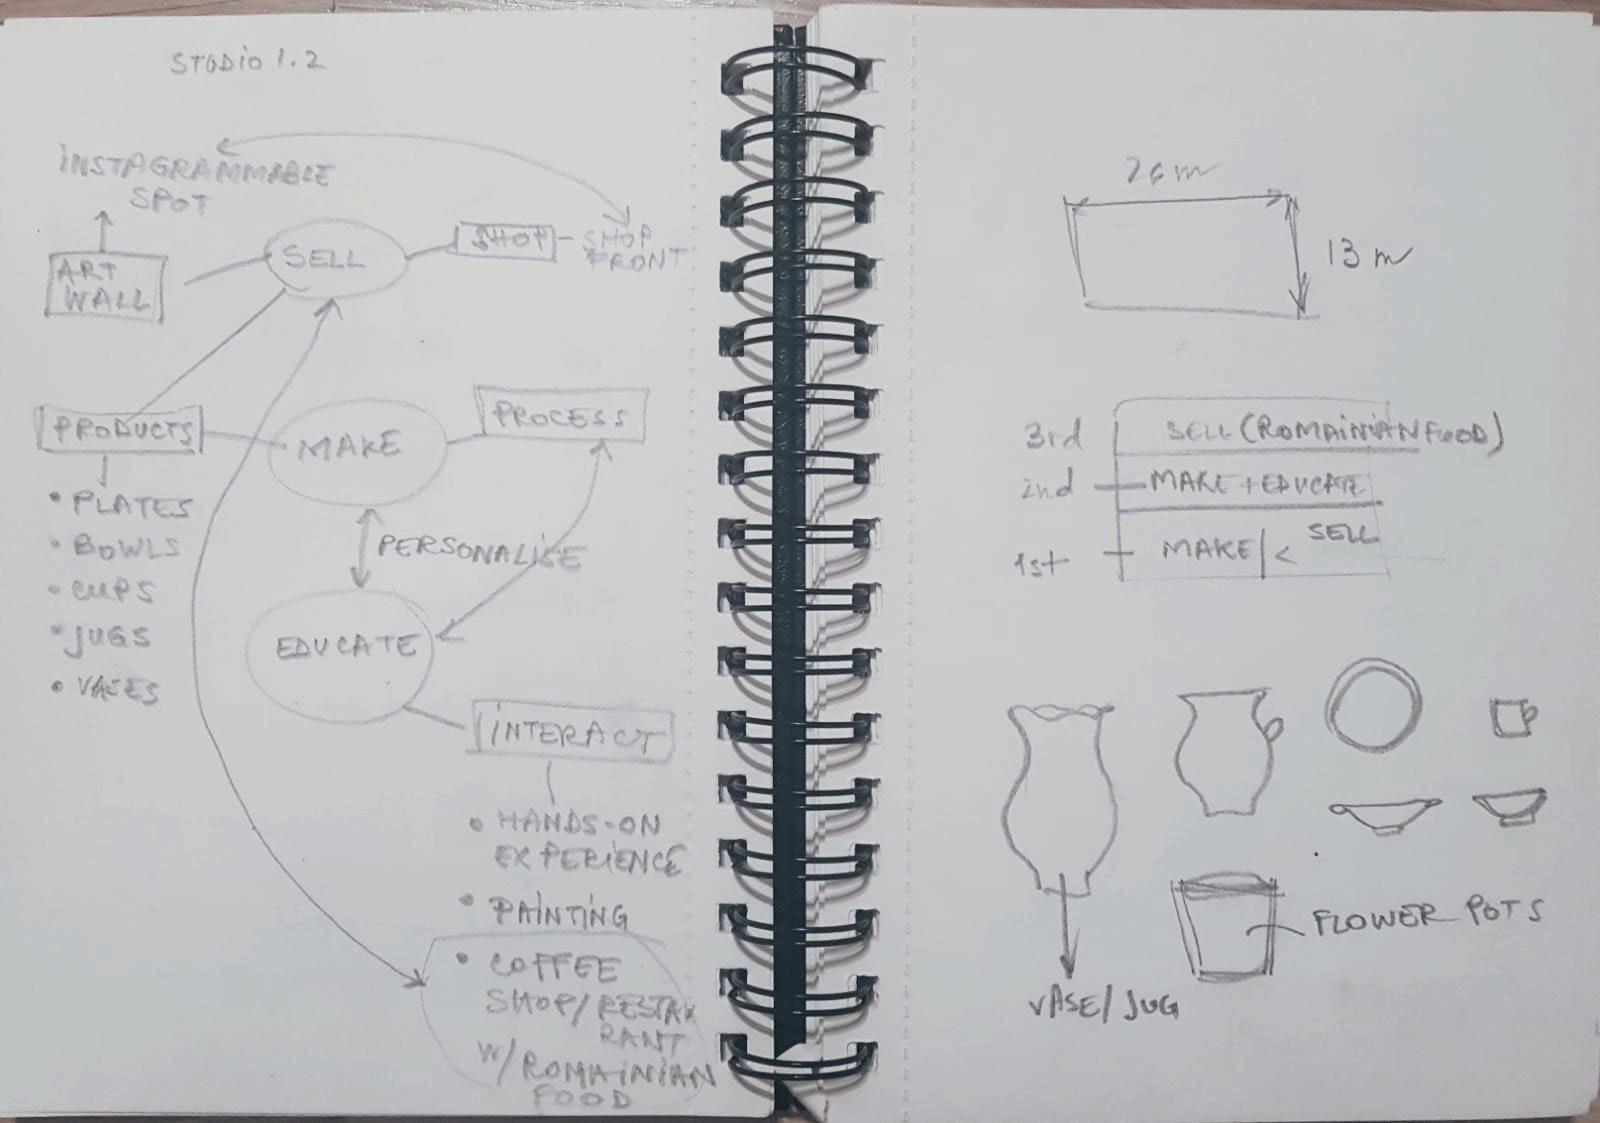 STUDIO 1.2
INSTAGRAMMABLE
SPOT
SELL
SHOP - SHOP
FRONT
ART
WALL
PRODUCTS
MAKE
PROCESS
• PLATES
• BOWLS
• CUPS
• JUGS
• VASES
PERSONALISE
EDUCATE
INTERACT
• HANDS-ON
EXPERIENCE
• PAINTING
• COFFEE
SHOP/RESTAU
RANT
W/ROMAINIAN
FOOD
26 m
13 m
3rd SELL (ROMAINIAN FOOD)
2nd MAKE + EDUCATE
1st MAKE/< SELL
FLOWER POTS
VASE/JUG